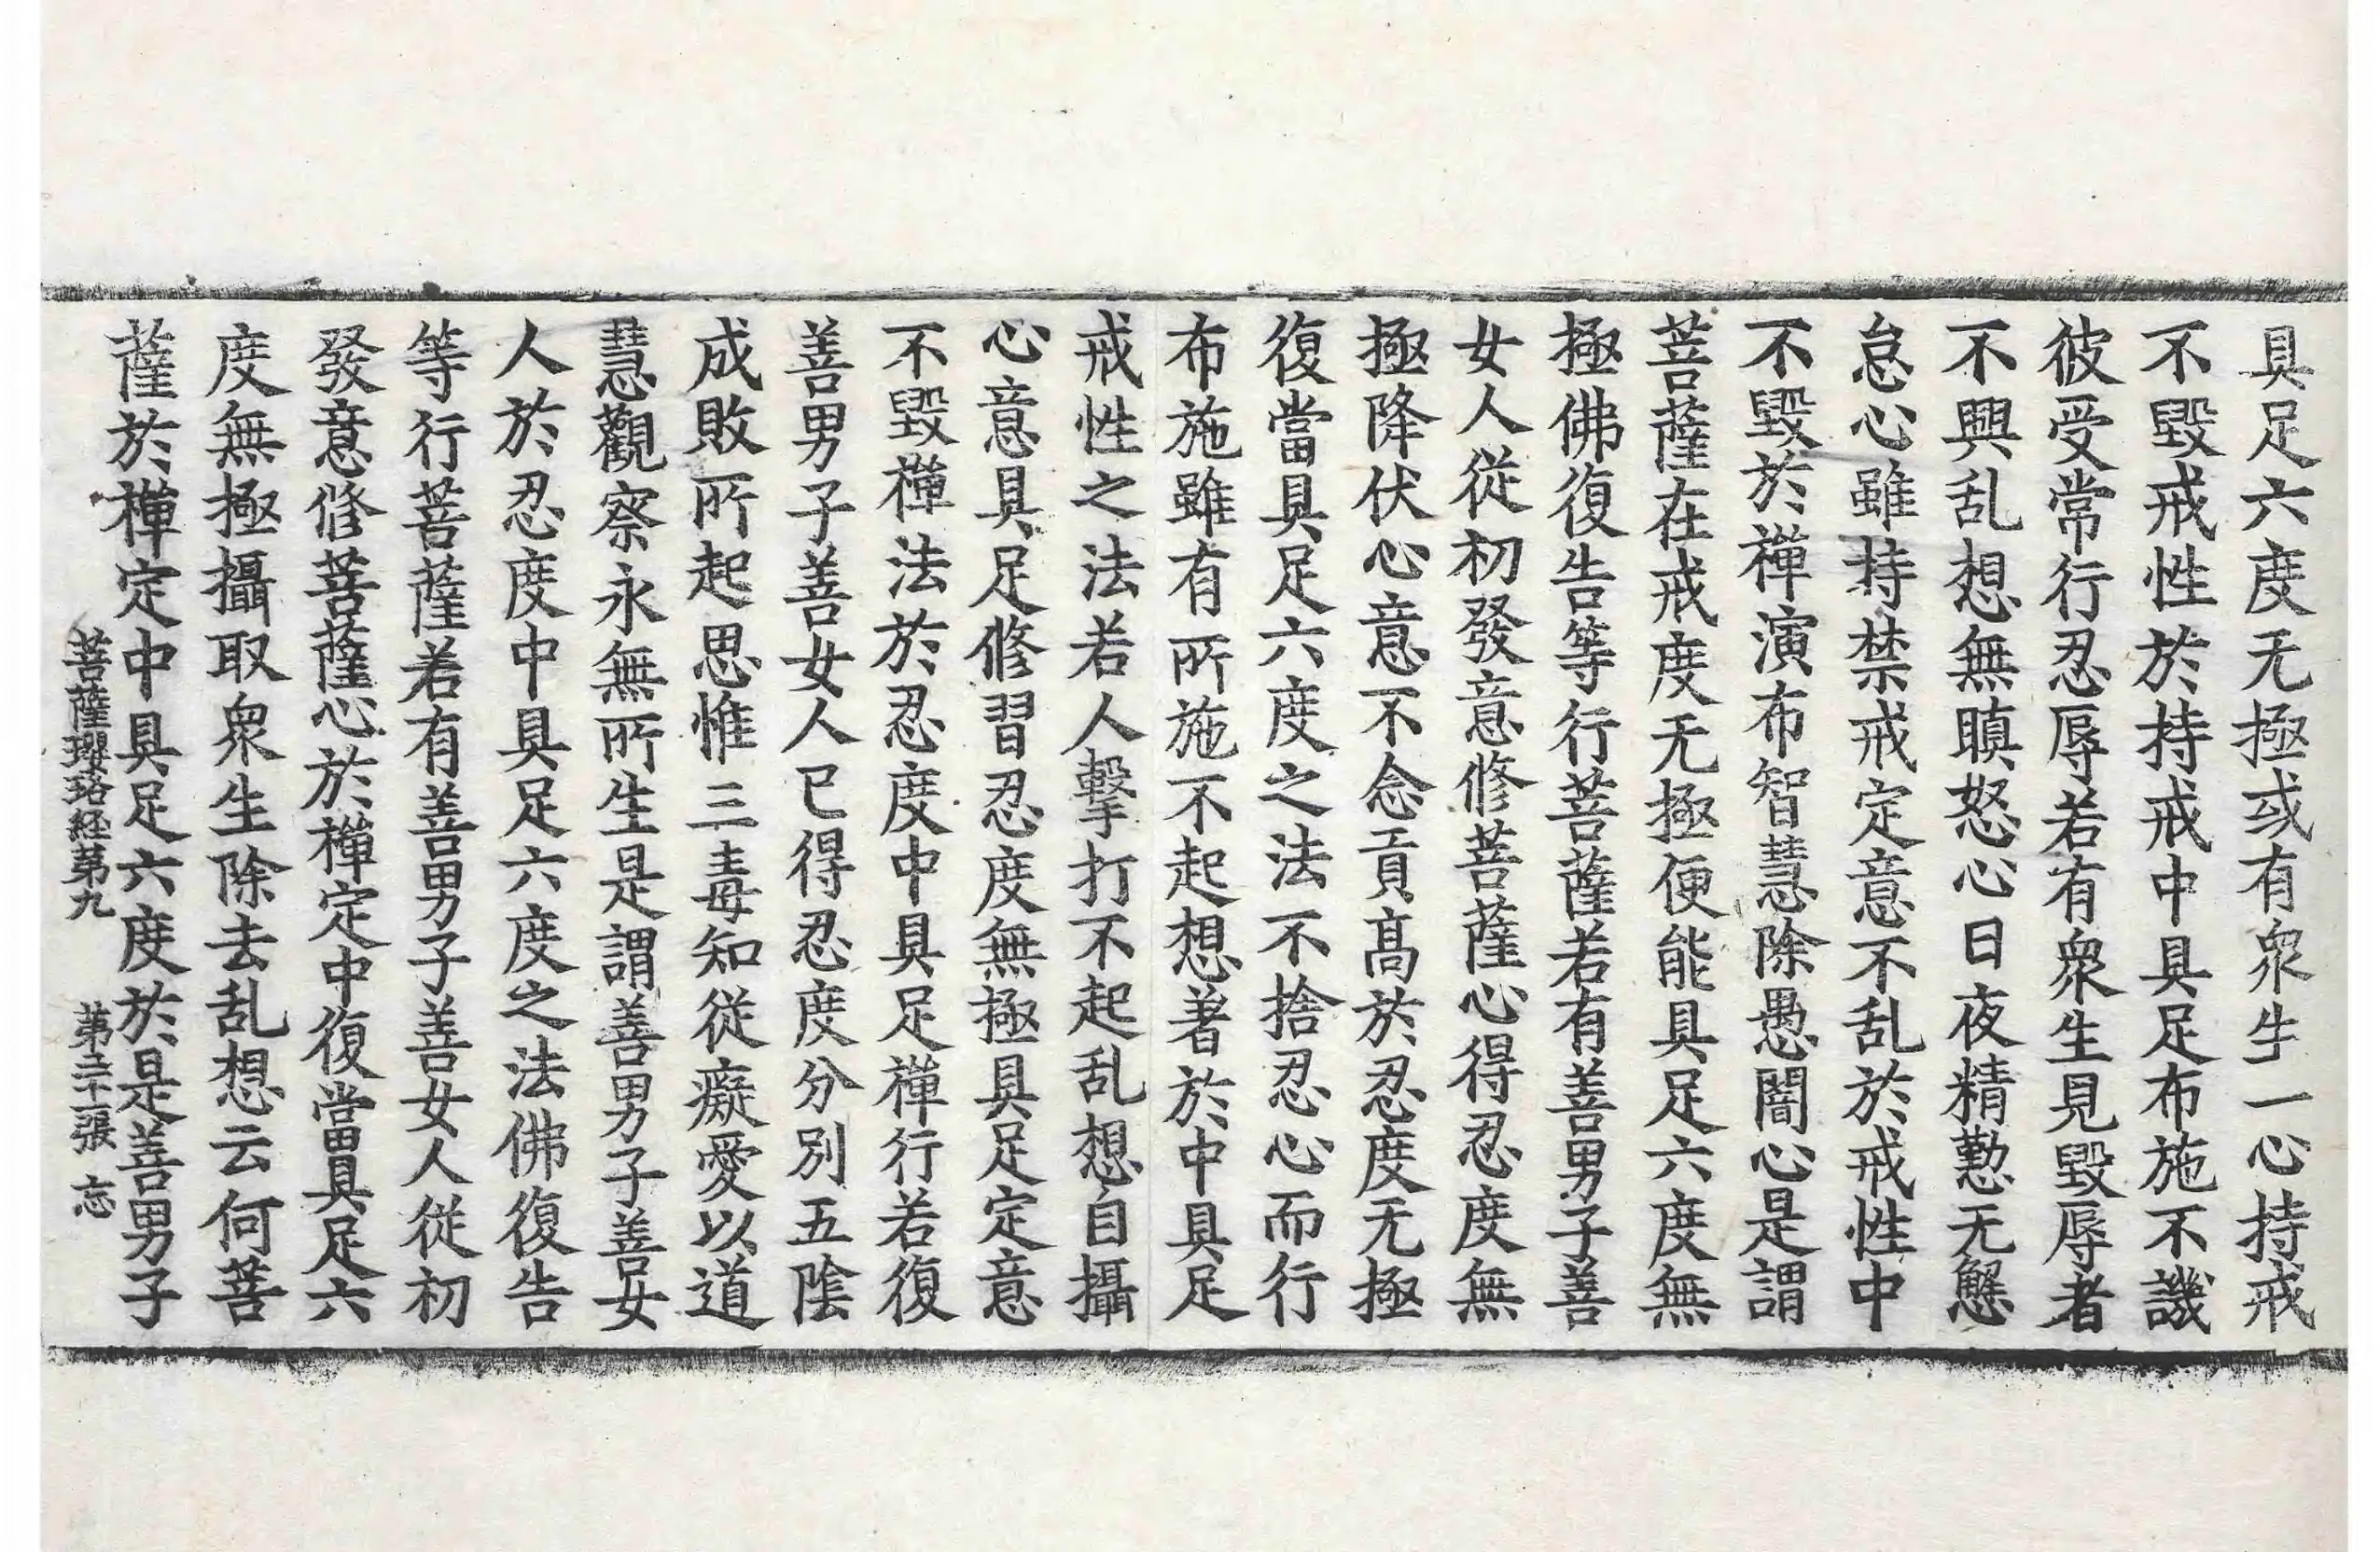 具足六度无極或有衆生一心持戒
不毀戒性於持戒中具足布施不譏
彼受常行忍辱若有衆生見毀辱者
不興乱想無瞋怒心日夜精懃无懈
怠心雖持禁戒定意不乱於戒性中
不毀於禪演布智慧除愚闇心是謂
菩薩在戒度无極便能具足六度無
極佛復告等行菩薩若有善男子善
女人從初發意修菩薩心得忍度無
極降伏心意不念貢高於忍度无極
復當具足六度之法不捨忍心而行
布施雖有所施不起想著於中具足
戒性之法若人擊打不起乱想自攝
心意具足修習忍度無極具足定意
不毀禪法於忍度中具足禪行若復
善男子善女人已得忍度分別五陰
成敗所起思惟三毒知從癡愛以道
慧觀察永無所生是謂善男子善女
人於忍度中具足六度之法佛復告
等行菩薩若有善男子善女人從初
發意修菩薩心於禪定中復當具足六
度無極攝取衆生除去乱想云何菩
薩於禪定中具足六度於是善男子
菩薩瓔珞経苐九 苐三十一張 忘